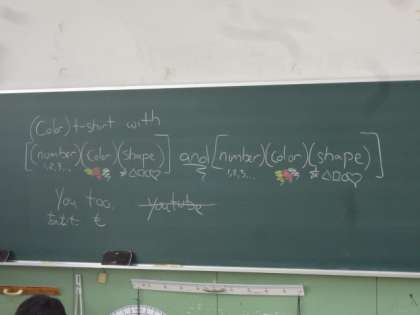 (Color) t-shirt with
[(number)(color)(shape)] and [(number)(color)(shape)]
1,2,3... ☆△□○♡ 1,2,3... ☆△□○♡
You too. youtube
あなた も